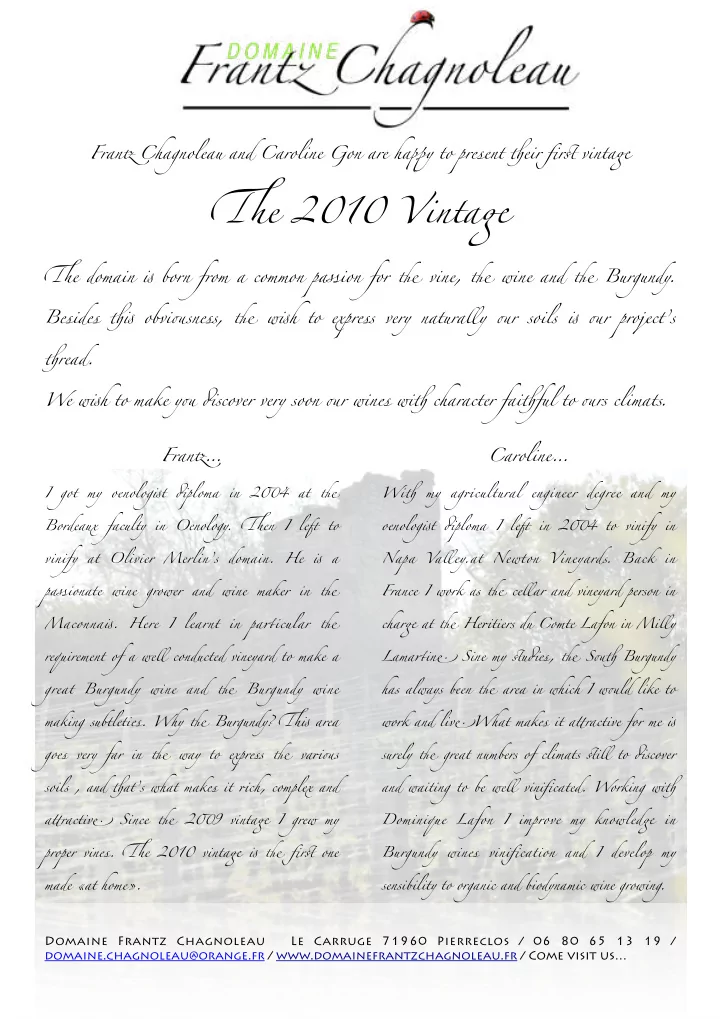 DOMAINE
Frantz Chagnoleau
Frantz Chagnoleau and Caroline Gon are happy to present their first vintage
The 2010 Vintage
The domain is born from a common passion for the vine, the wine and the Burgundy.
Besides this obviousness, the wish to express very naturally our soils is our project's
thread.
We wish to make you discover very soon our wines with character faithful to ours climats.
Frantz...
I got my oenologist diploma in 2004 at the
Bordeaux faculty in Oenology. Then I left to
vinify at Olivier Merlin's domain. He is a
passionate wine grower and wine maker in the
Maconnais. Here I learnt in particular the
requirement of a well conducted vineyard to make a
great Burgundy wine and the Burgundy wine
making subtleties. Why the Burgundy? This area
goes very far in the way to express the various
soils , and that's what makes it rich, complex and
attractive. Since the 2009 vintage I grew my
proper vines. The 2010 vintage is the first one
made «at home».
Caroline...
With my agricultural engineer degree and my
oenologist diploma I left in 2004 to vinify in
Napa Valley.at Newton Vineyards. Back in
France I work as the cellar and vineyard person in
charge at the Heritiers du Comte Lafon in Milly
Lamartine. Sine my studies, the South Burgundy
has always been the area in which I would like to
work and live. What makes it attractive for me is
surely the great numbers of climats still to discover
and waiting to be well vinificated. Working with
Dominique Lafon I improve my knowledge in
Burgundy wines vinification and I develop my
sensibility to organic and biodynamic wine growing.
Domaine Frantz Chagnoleau Le Carruge 71960 Pierreclos / 06 80 65 13 19 /
domaine.chagnoleau@orange.fr / www.domainefrantzchagnoleau.fr / Come visit us...